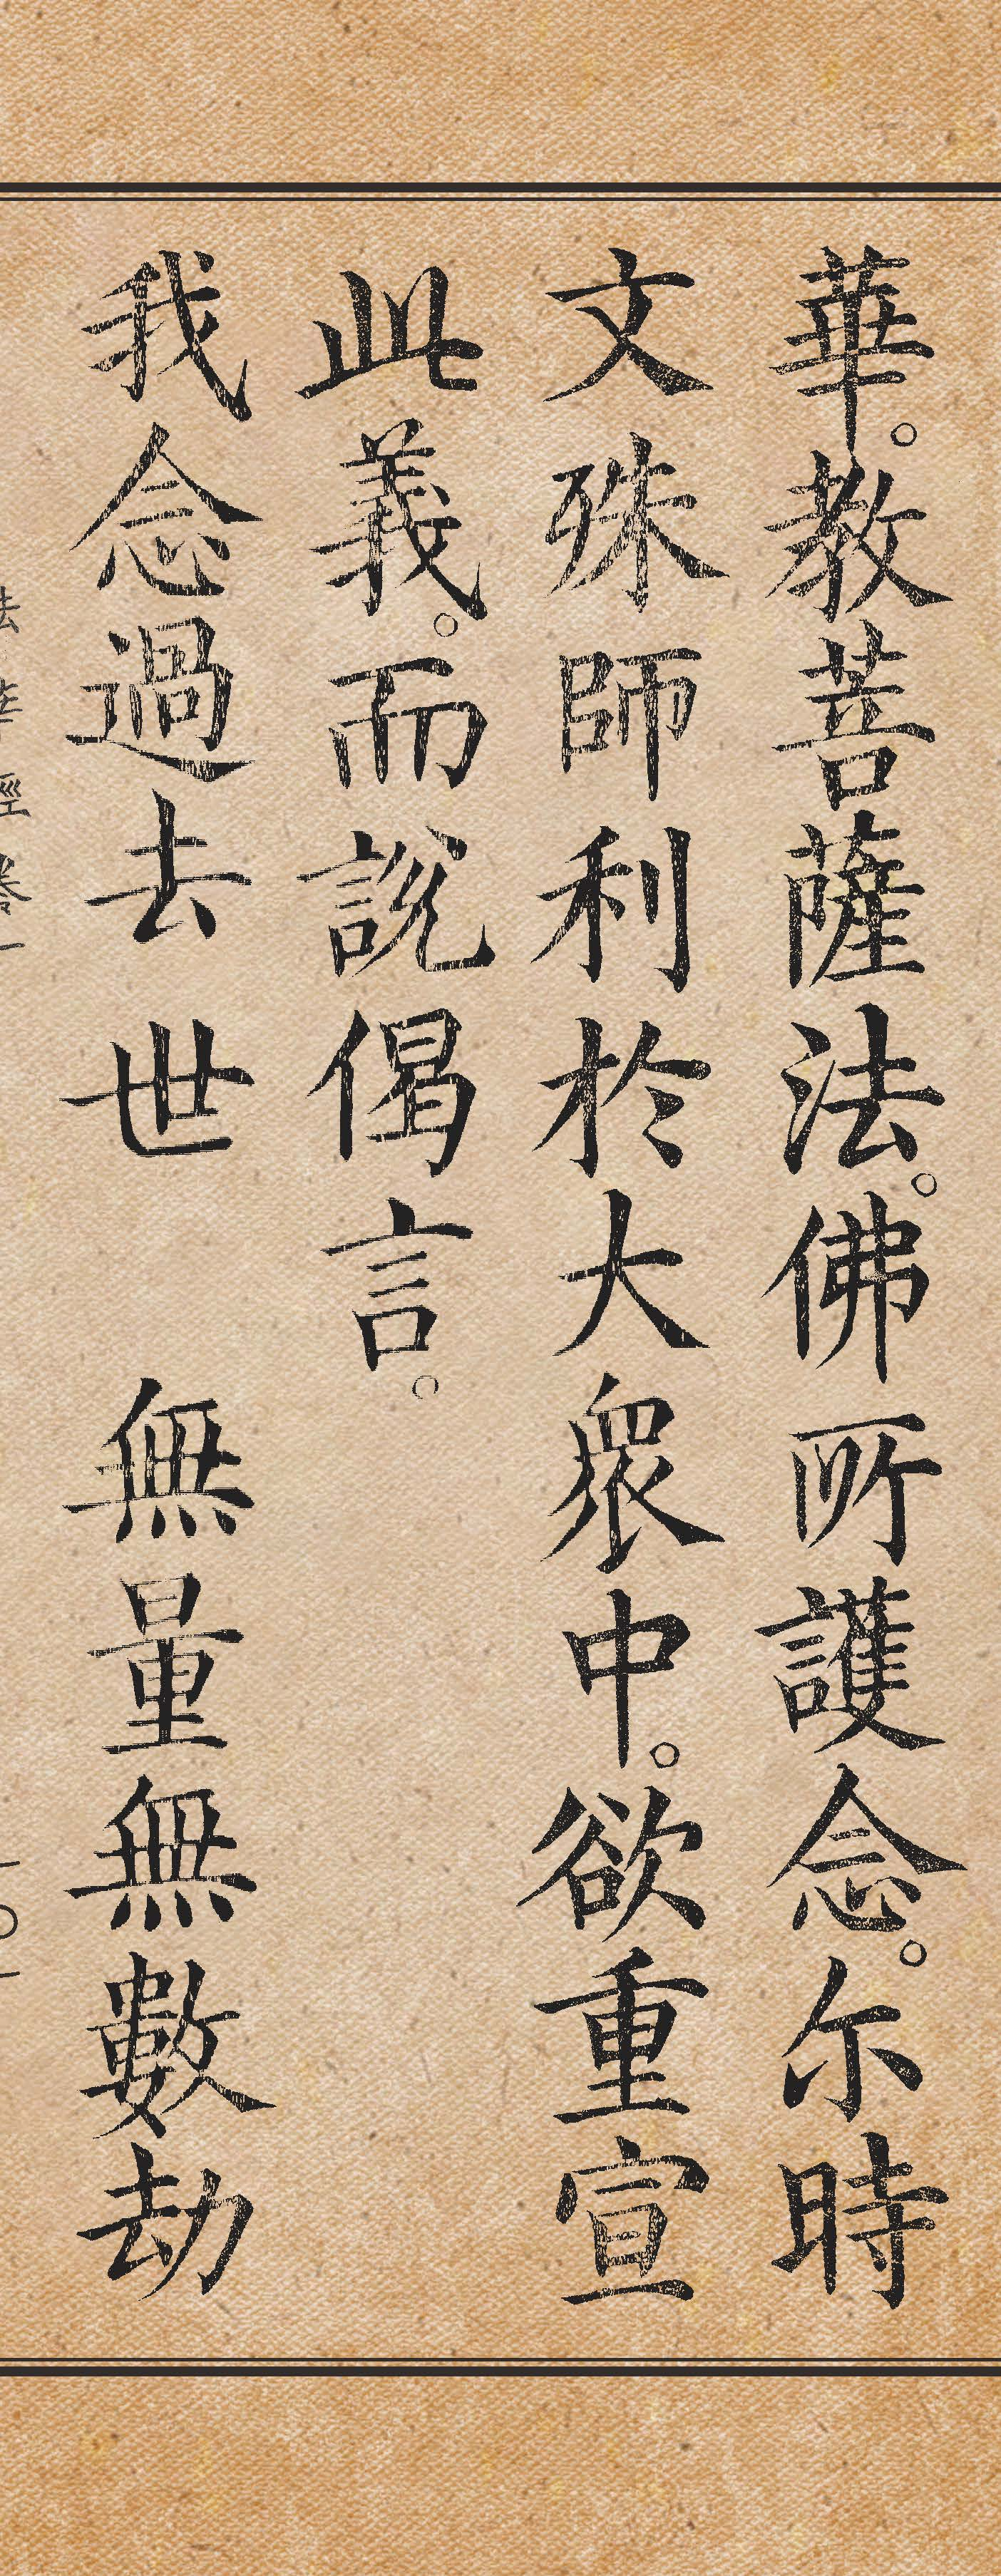 華。教菩薩法。佛所護念。尒時
文殊師利於大眾中。欲重宣
此義。而說偈言。
我念過去世　無量無數劫
法華經卷一
一〇一